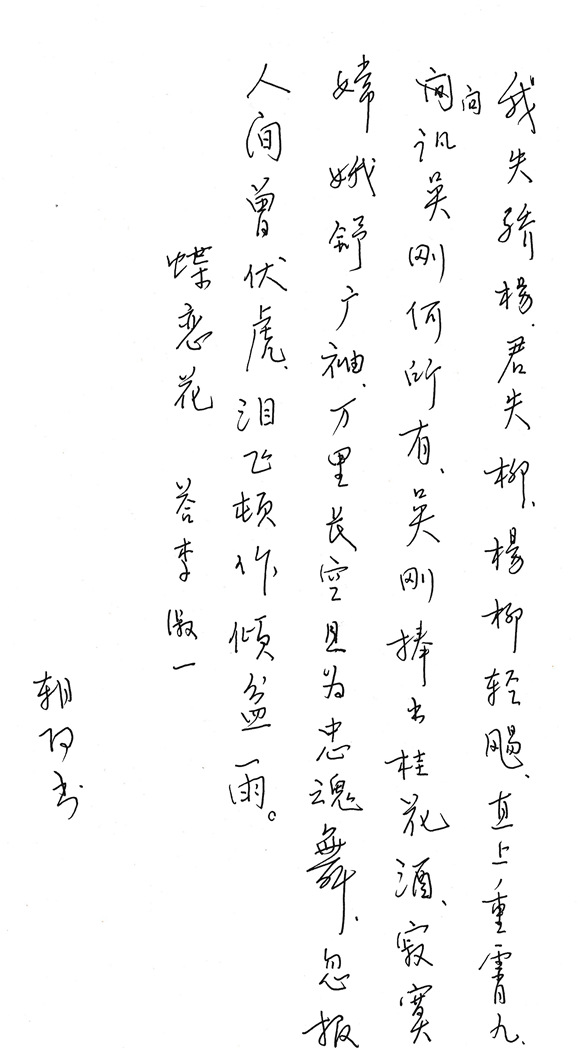 我失骄楊、君失柳、楊柳轻飏、直上重霄九、
问讯吴刚何所有、吴刚捧出桂花酒、寂寞
嫦娥舒广袖、万里长空且为忠魂舞、忽报
人间曾伏虎、泪飞顿作倾盆雨。
蝶恋花 答李淑一
朝阳书